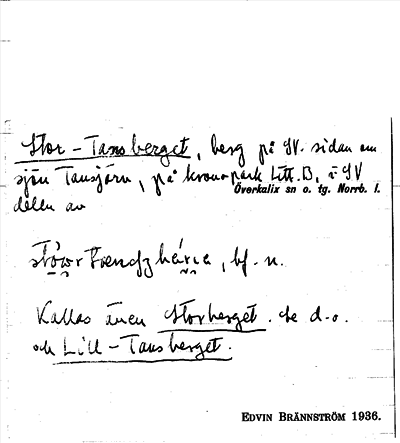 Stor-Tansberget, berg på SV. sidan om
sjön Tansjärn, på kronopark Litt. B. i SV
Överkalix sn o. tg. Norrb. l.
delen av
bf. n.
Kallas även Storberget. Se d.o.
och Lill-Tansberget.
EDVIN BRÄNNSTRÖM 1936.